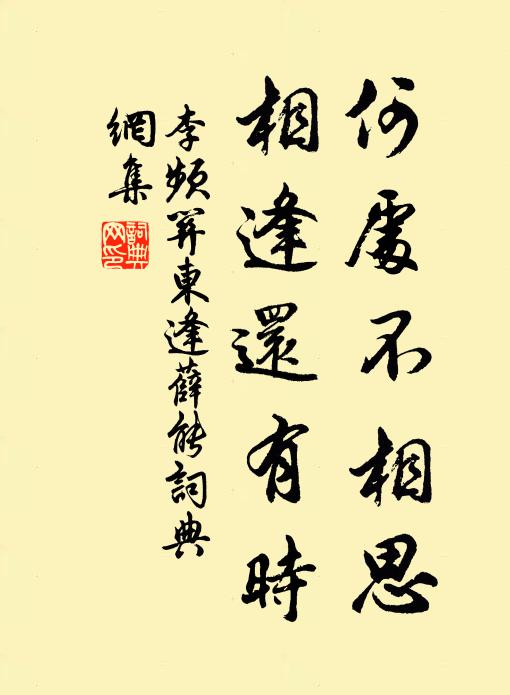 何處不相思
相逢還有時
李頻關東逢薛能詞典
網集
詞典
网印